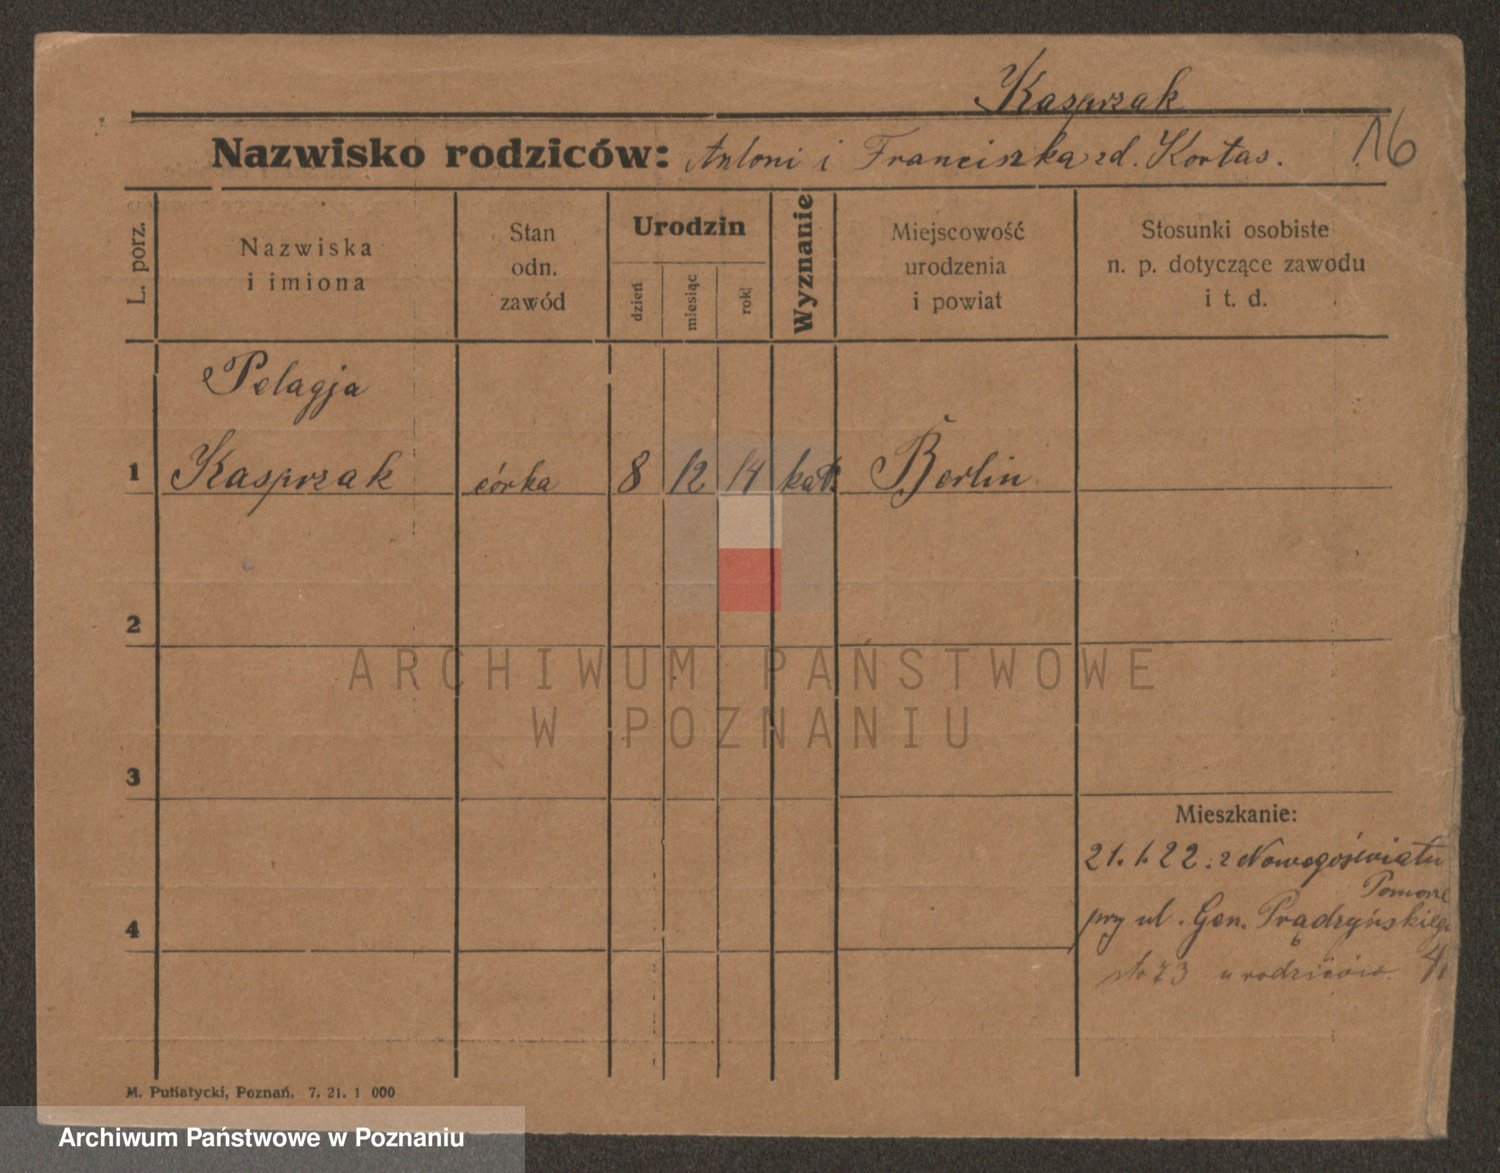 Kasprzak
Nazwisko rodziców: Antoni i Franciszka zd. Kortas.
16
L. porz.
Nazwiska
i imiona
Stan
odn.
zawód
Urodzin
dzień
miesiąc
rok
Wyznanie
Miejscowość
urodzenia
i powiat
Stosunki osobiste
n. p. dotyczące zawodu
i t. d.
Pelagja
1 Kasprzak córka 8 12 14 kat. Berlin
2
3
4
Mieszkanie:
21. 1. 22. z Nowegoświatu
Pomorze
przy ul. Gen. Prądzyńskiego
4
73 u rodziców.
M. Putiatycki, Poznań. 7. 21. 1 000
ARCHIWUM PAŃSTWOWE
W POZNANIU
Archiwum Państwowe w Poznaniu